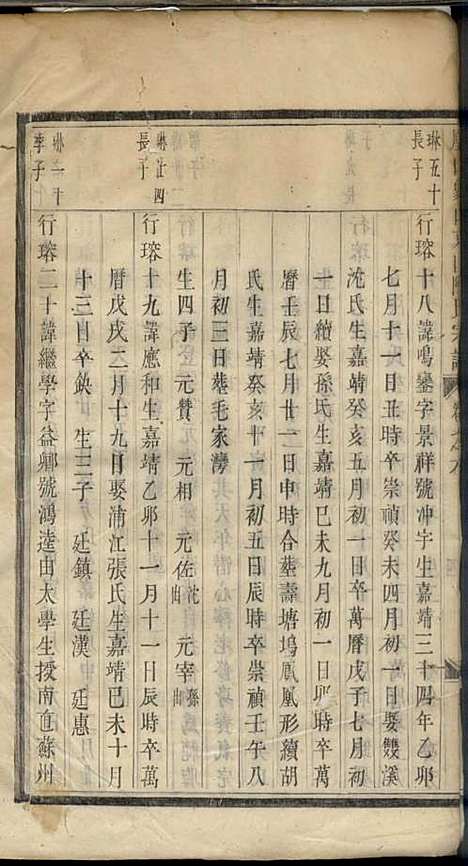 琳五十
長子
行瑢十八諱鳴鑾字景祥號冲宇生嘉靖三十四年乙卯
七月十一日丑時卒崇禎癸未四月初一日娶雙溪
沈氏生嘉靖癸亥五月初一日卒萬曆戊子七月初
十日續娶孫氏生嘉靖己未九月初一日卯時卒萬
曆壬辰七月廿一日申時合塟壽塘塢鳳凰形續胡
氏生嘉靖癸亥十一月初五日辰時卒崇禎壬午八
月初三日塟毛家灣
生四子 元贊 元相 元佐沈出 元宰孫出
琳廿四
長子
行瑢十九諱應和生嘉靖乙卯十一月十一日辰時卒萬
曆戊戌二月十九日娶浦江張氏生嘉靖己未十月
十三日卒缺 生三子 廷鎮 廷漢 廷惠
琳一十
季子
行瑢二十諱繼學字益卿號鴻逵由太學生授南直蘇州